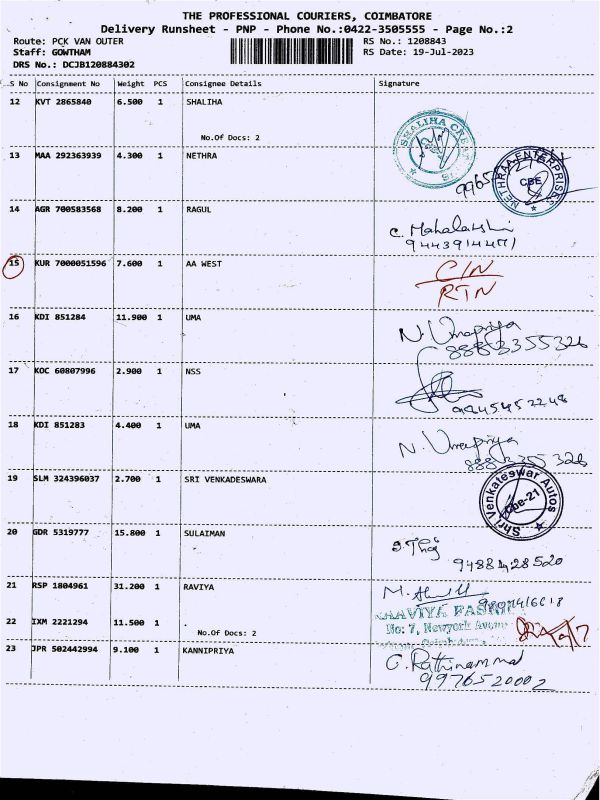 THE PROFESSIONAL COURIERS, COIMBATORE
Delivery Runsheet - PNP - Phone No.:0422-3505555 - Page No.:2
Route: PCK VAN OUTER RS No.: 1208843
Staff: GOWTHAM RS Date: 19-Jul-2023
DRS No.: DCJB120884302
S No Consignment No Weight PCS Consignee Details Signature
12 KVT 2865840 6.500 1 SHALIHA
No.Of Docs: 2
SHALIHA
13 MAA 292363939 4.300 1 NETHRA
9965
NETHRAA ENTERPRISES CBE
14 AGR 700583568 8.200 1 RAGUL
C. Mahalakshmi
15 KUR 7000051596 7.600 1 AA WEST
RTN
16 KDI 851284 11.900 1 UMA
N. Umapriya
8883355326
17 KOC 60807996 2.900 1 NSS
18 KDI 851283 4.400 1 UMA
N. Umapriya
8883355326
19 SLM 324396037 2.700 1 SRI VENKADESWARA
Shri Venkateswar Autos Cbe-21
20 GDR 5319777 15.800 1 SULAIMAN
9488428520
21 RSP 1804961 31.200 1 RAVIYA
M.
No: 7, Newyork
22 IXM 2221294 11.500 1
No.Of Docs: 2
23 JPR 502442994 9.100 1 KANNIPRIYA
C. Rathinammal
9976520002